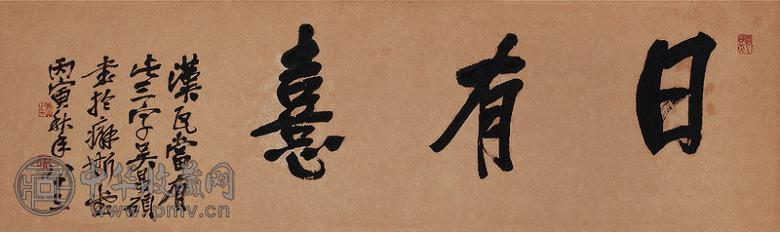 日有憙
漢瓦當有
此三字吳昌碩
書於癖斯堂
丙寅秋年八十三
中华收藏网
www.pmv.cn